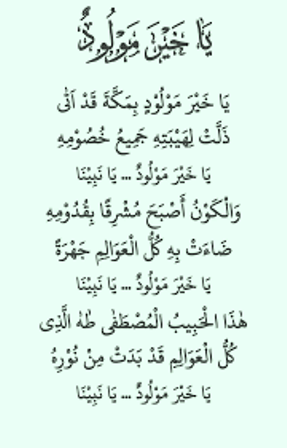 يَا خَيْرَ مَوْلُودٌ
يَا خَيْرَ مَوْلُوْدٍ بِمَكَّةَ قَدْ اَتٰى
ذَلَّتْ لِهَيْبَتِهِ جَمِيعُ خُصُوْمِهِ
يَا خَيْرَ مَوْلُودٌ ... يَا نَبِيْنَا
وَالْكَوْنُ أَصْبَحَ مُشْرِقًا بِقُدُوْمِهِ
ضَاءَتْ بِهِ كُلُّ الْعَوَالِمِ جَهْرَةً
يَا خَيْرَ مَوْلُودٌ ... يَا نَبِيْنَا
هٰذَا الْحَبِيبُ الْمُصْطَفٰى طٰهٰ الَّذِى
كُلُّ الْعَوَالِمِ قَدْ بَدَتْ مِنْ نُوْرِهُ
يَا خَيْرَ مَوْلُودٌ ... يَا نَبِيْنَا